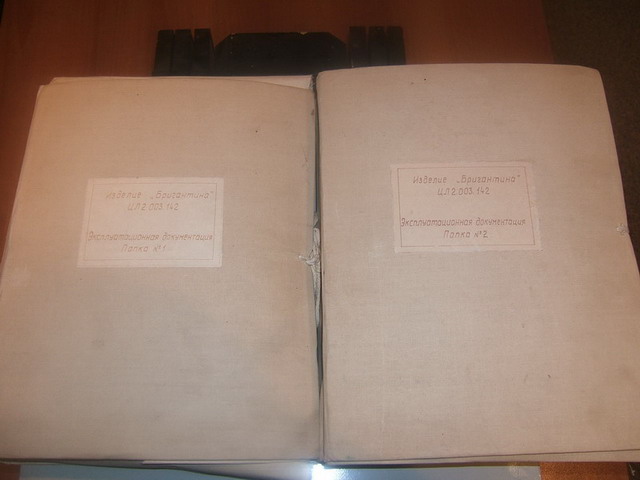 Изделие „Бригантина"
ЦЛ2.003.142
Эксплуатационная документация
Папка №1
Изделие „Бригантина"
ЦЛ2.003.142
Эксплуатационная документация
Папка №2